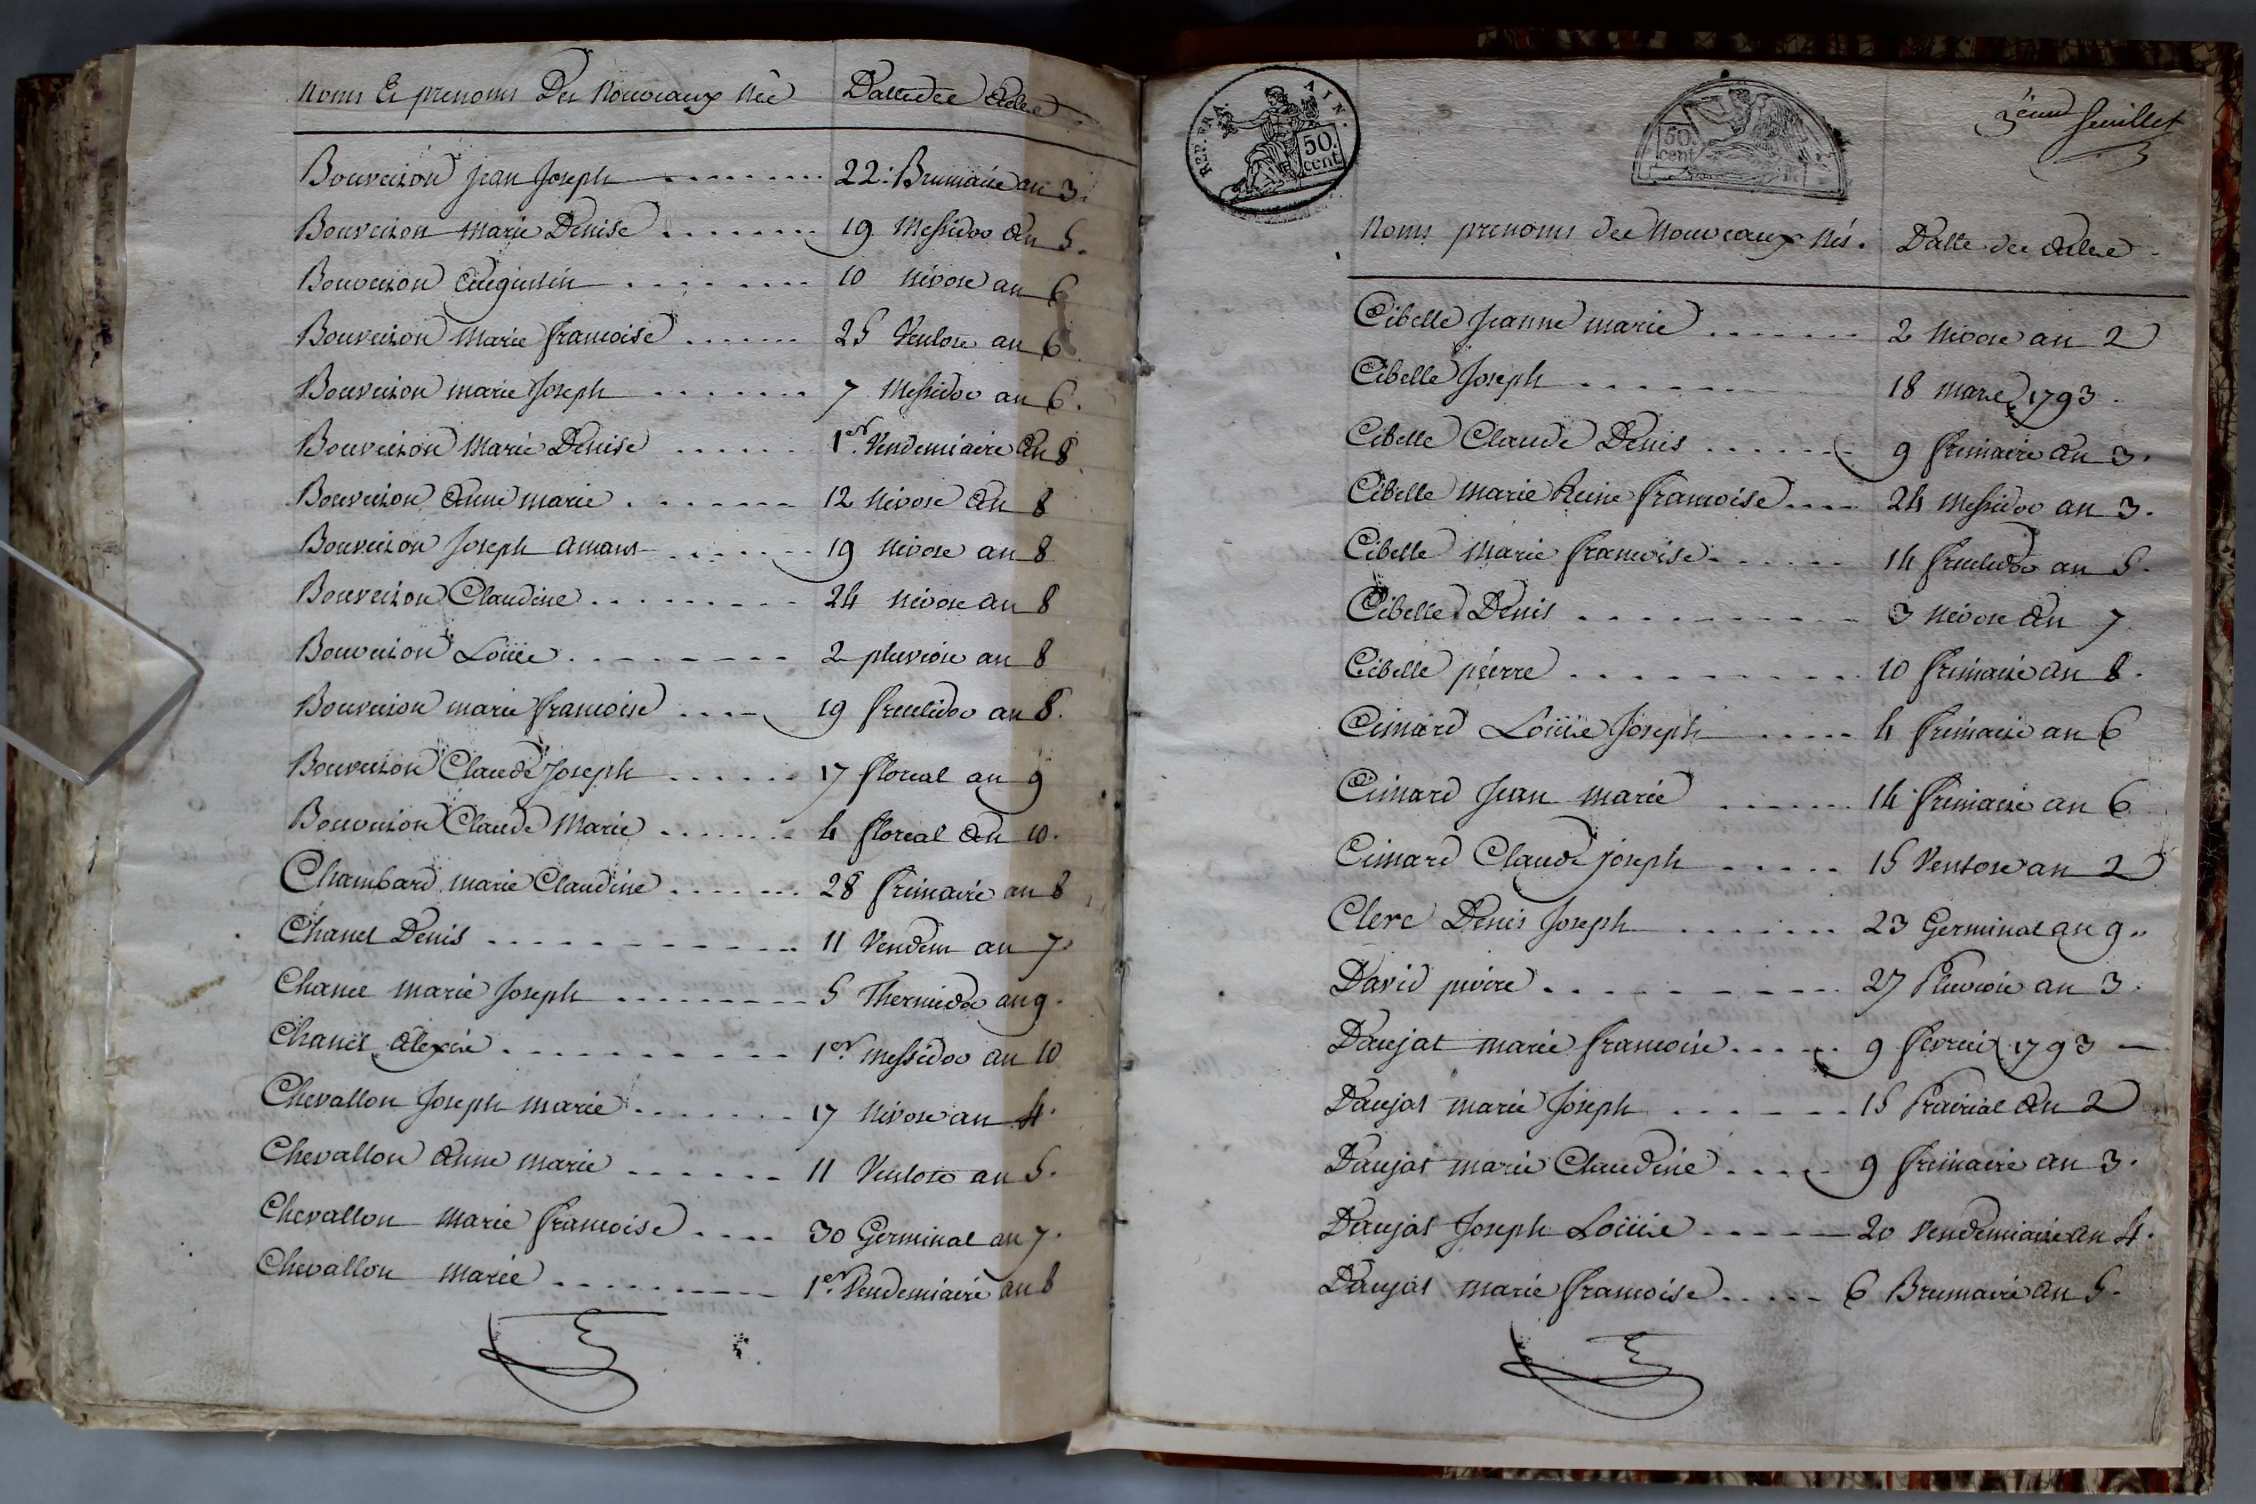 Noms Et prenoms Des Nouveaux Née Datte des Acte
Bouveiron Jean Joseph 22 Brumaire an 3.
Bouveiron Marie Denise 19 Messidor An 5.
Bouveiron Augustin 10 Nivose an 6
Bouveiron Marie francoise 25 Ventose an 6
Bouveiron marie Joseph 7 Messidor an 6.
Bouveiron Marie Denise 1er Vendemiaire An 8.
Bouveiron Anne marie 12 Nivose An 8
Bouveiron Joseph amans 19 Nivose an 8
Bouveiron Claudine 24 Nivose an 8
Bouveiron Loüise 2 pluviose an 8
Bouveiron marie francoise 19 fructidor an 8.
Bouveiron Claude Joseph 17 floreal an 9
Bouveiron Claude Marie 4 floreal An 10.
Chambard marie Claudine 28 frimaire an 8
Chanel Denis 11 Vendem an 7
Chanel marie Joseph 5 Thermidor an 9.
Chanel Alexis 1er messidor an 10
Chevallon Joseph marie 17 Nivose an 4.
Chevallon Anne marie 11 Ventose an 5.
Chevallon marie francoise 30 Germinal an 7.
Chevallon marie 1er Vendemiaire an 8
REP. FRA. 50. cent
50. cent
3eme feuillet
Noms prenoms des Nouveaux Nés. Datte des Actes
Cibelle Jeanne marie 2 Nivose an 2
Cibelle Joseph 18 mars 1793.
Cibelle Claude Denis 9 frimaire An 3.
Cibelle marie Reine francoise 24 Messidor an 3.
Cibelle Marie francoise 14 fructidor an 5.
Cibelle Denis 3 Nivose An 7
Cibelle pierre 10 frimaire an 8.
Cimard Loüise Joseph 4 frimaire an 6
Cimard Jean marie 14 frimaire an 6
Cimard Claude joseph 15 Ventose an 2
Clerc Denis Joseph 23 Germinal an 9..
David pierre 27 Pluviose an 3.
Daujat marie francoise 9 fevrier 1793
Daujat marie Joseph 15 Prairial An 2
Daujat marie Claudine 9 frimaire an 3.
Daujat Joseph Loüise 20 Vendemiaire An 4.
Daujat marie francoise 6 Brumaire An 5.